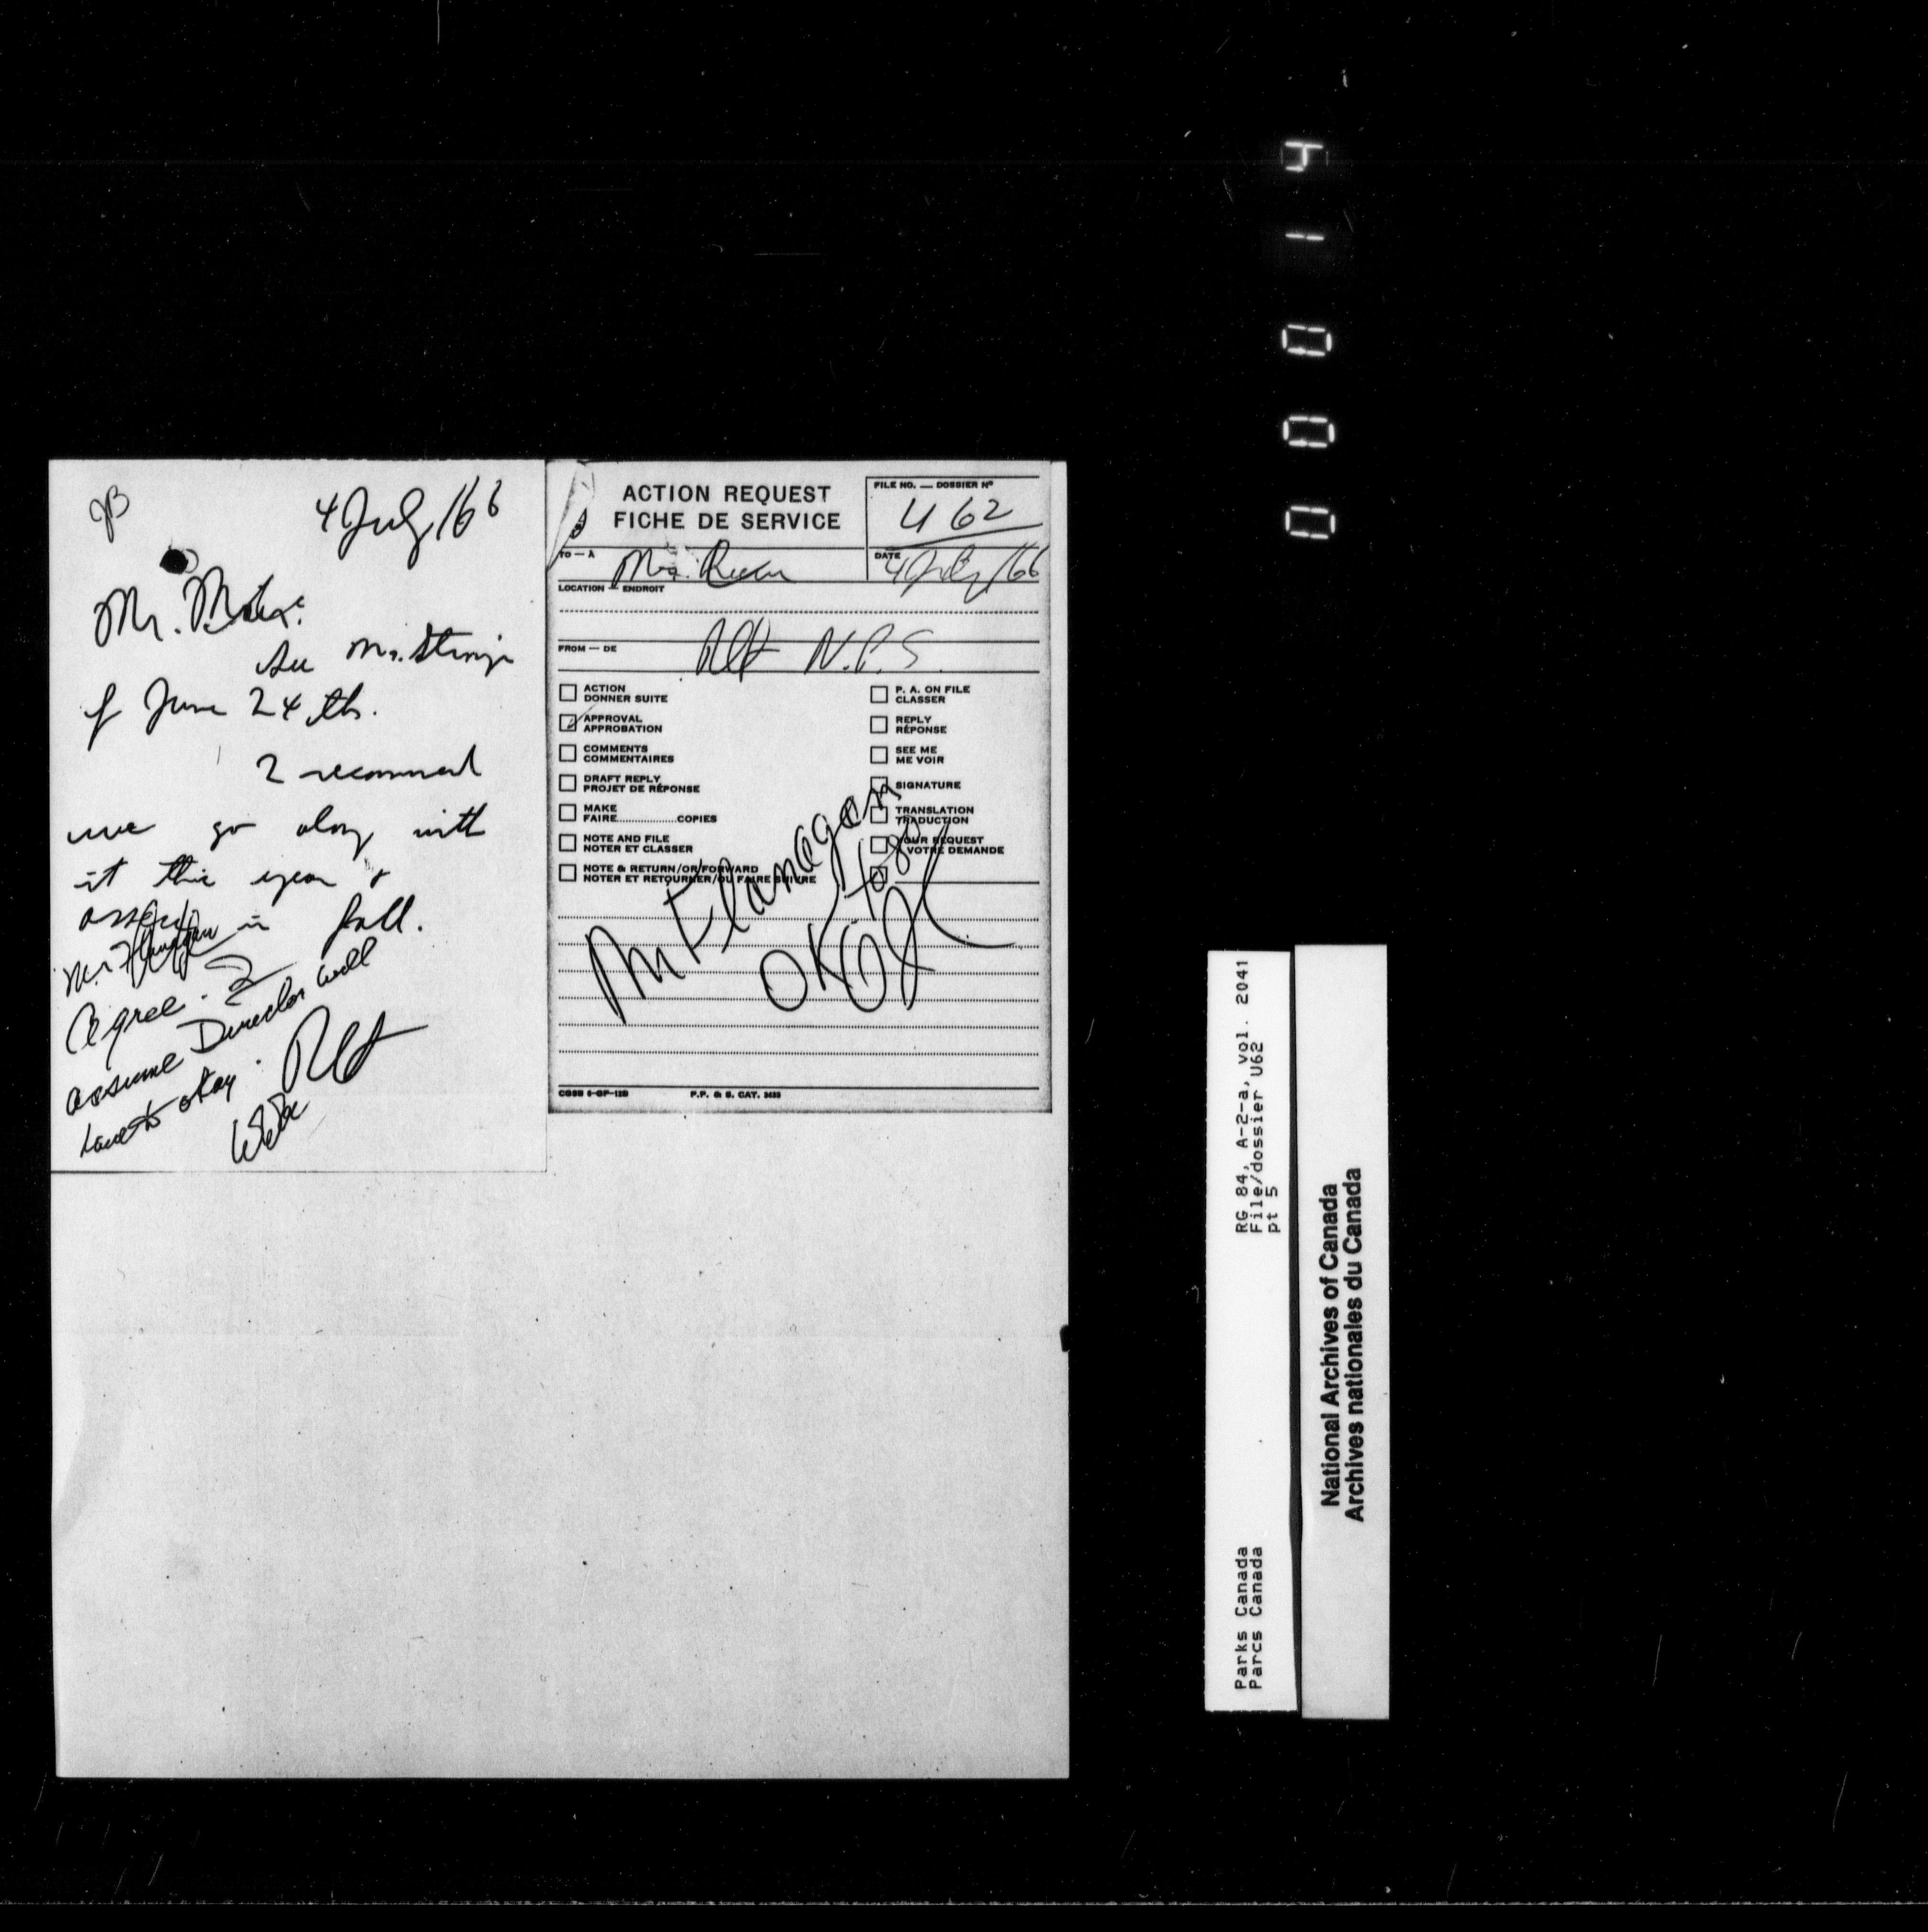 4 July/66
Mr.
See Mr. Strong
of June 24 th.
I recommend
we go along with
it this year &
assess in fall.
Mr. Flanagan
Agree. I
assume Director will
have to okay.
ACTION REQUEST
FICHE DE SERVICE
FILE NO. — DOSSIER Nº
U 62
TO — À
DATE
4 July/66
LOCATION — ENDROIT
FROM — DE
N.P.S.
ACTION
DONNER SUITE
APPROVAL
APPROBATION
COMMENTS
COMMENTAIRES
DRAFT REPLY
PROJET DE RÉPONSE
MAKE
FAIRE..............COPIES
NOTE AND FILE
NOTER ET CLASSER
NOTE & RETURN/OR/FORWARD
NOTER ET RETOURNER/OU FAIRE SUIVRE
P. A. ON FILE
CLASSER
REPLY
RÉPONSE
SEE ME
ME VOIR
SIGNATURE
TRANSLATION
TRADUCTION
YOUR REQUEST
VOTRE DEMANDE
Mr Flanagan
OK. to go
CGSB 6-GP-12B P.P. & S. CAT.
RG 84, A-2-a, vol. 2041
File/dossier U62
pt 5
Parks Canada
Parcs Canada
National Archives of Canada
Archives nationales du Canada